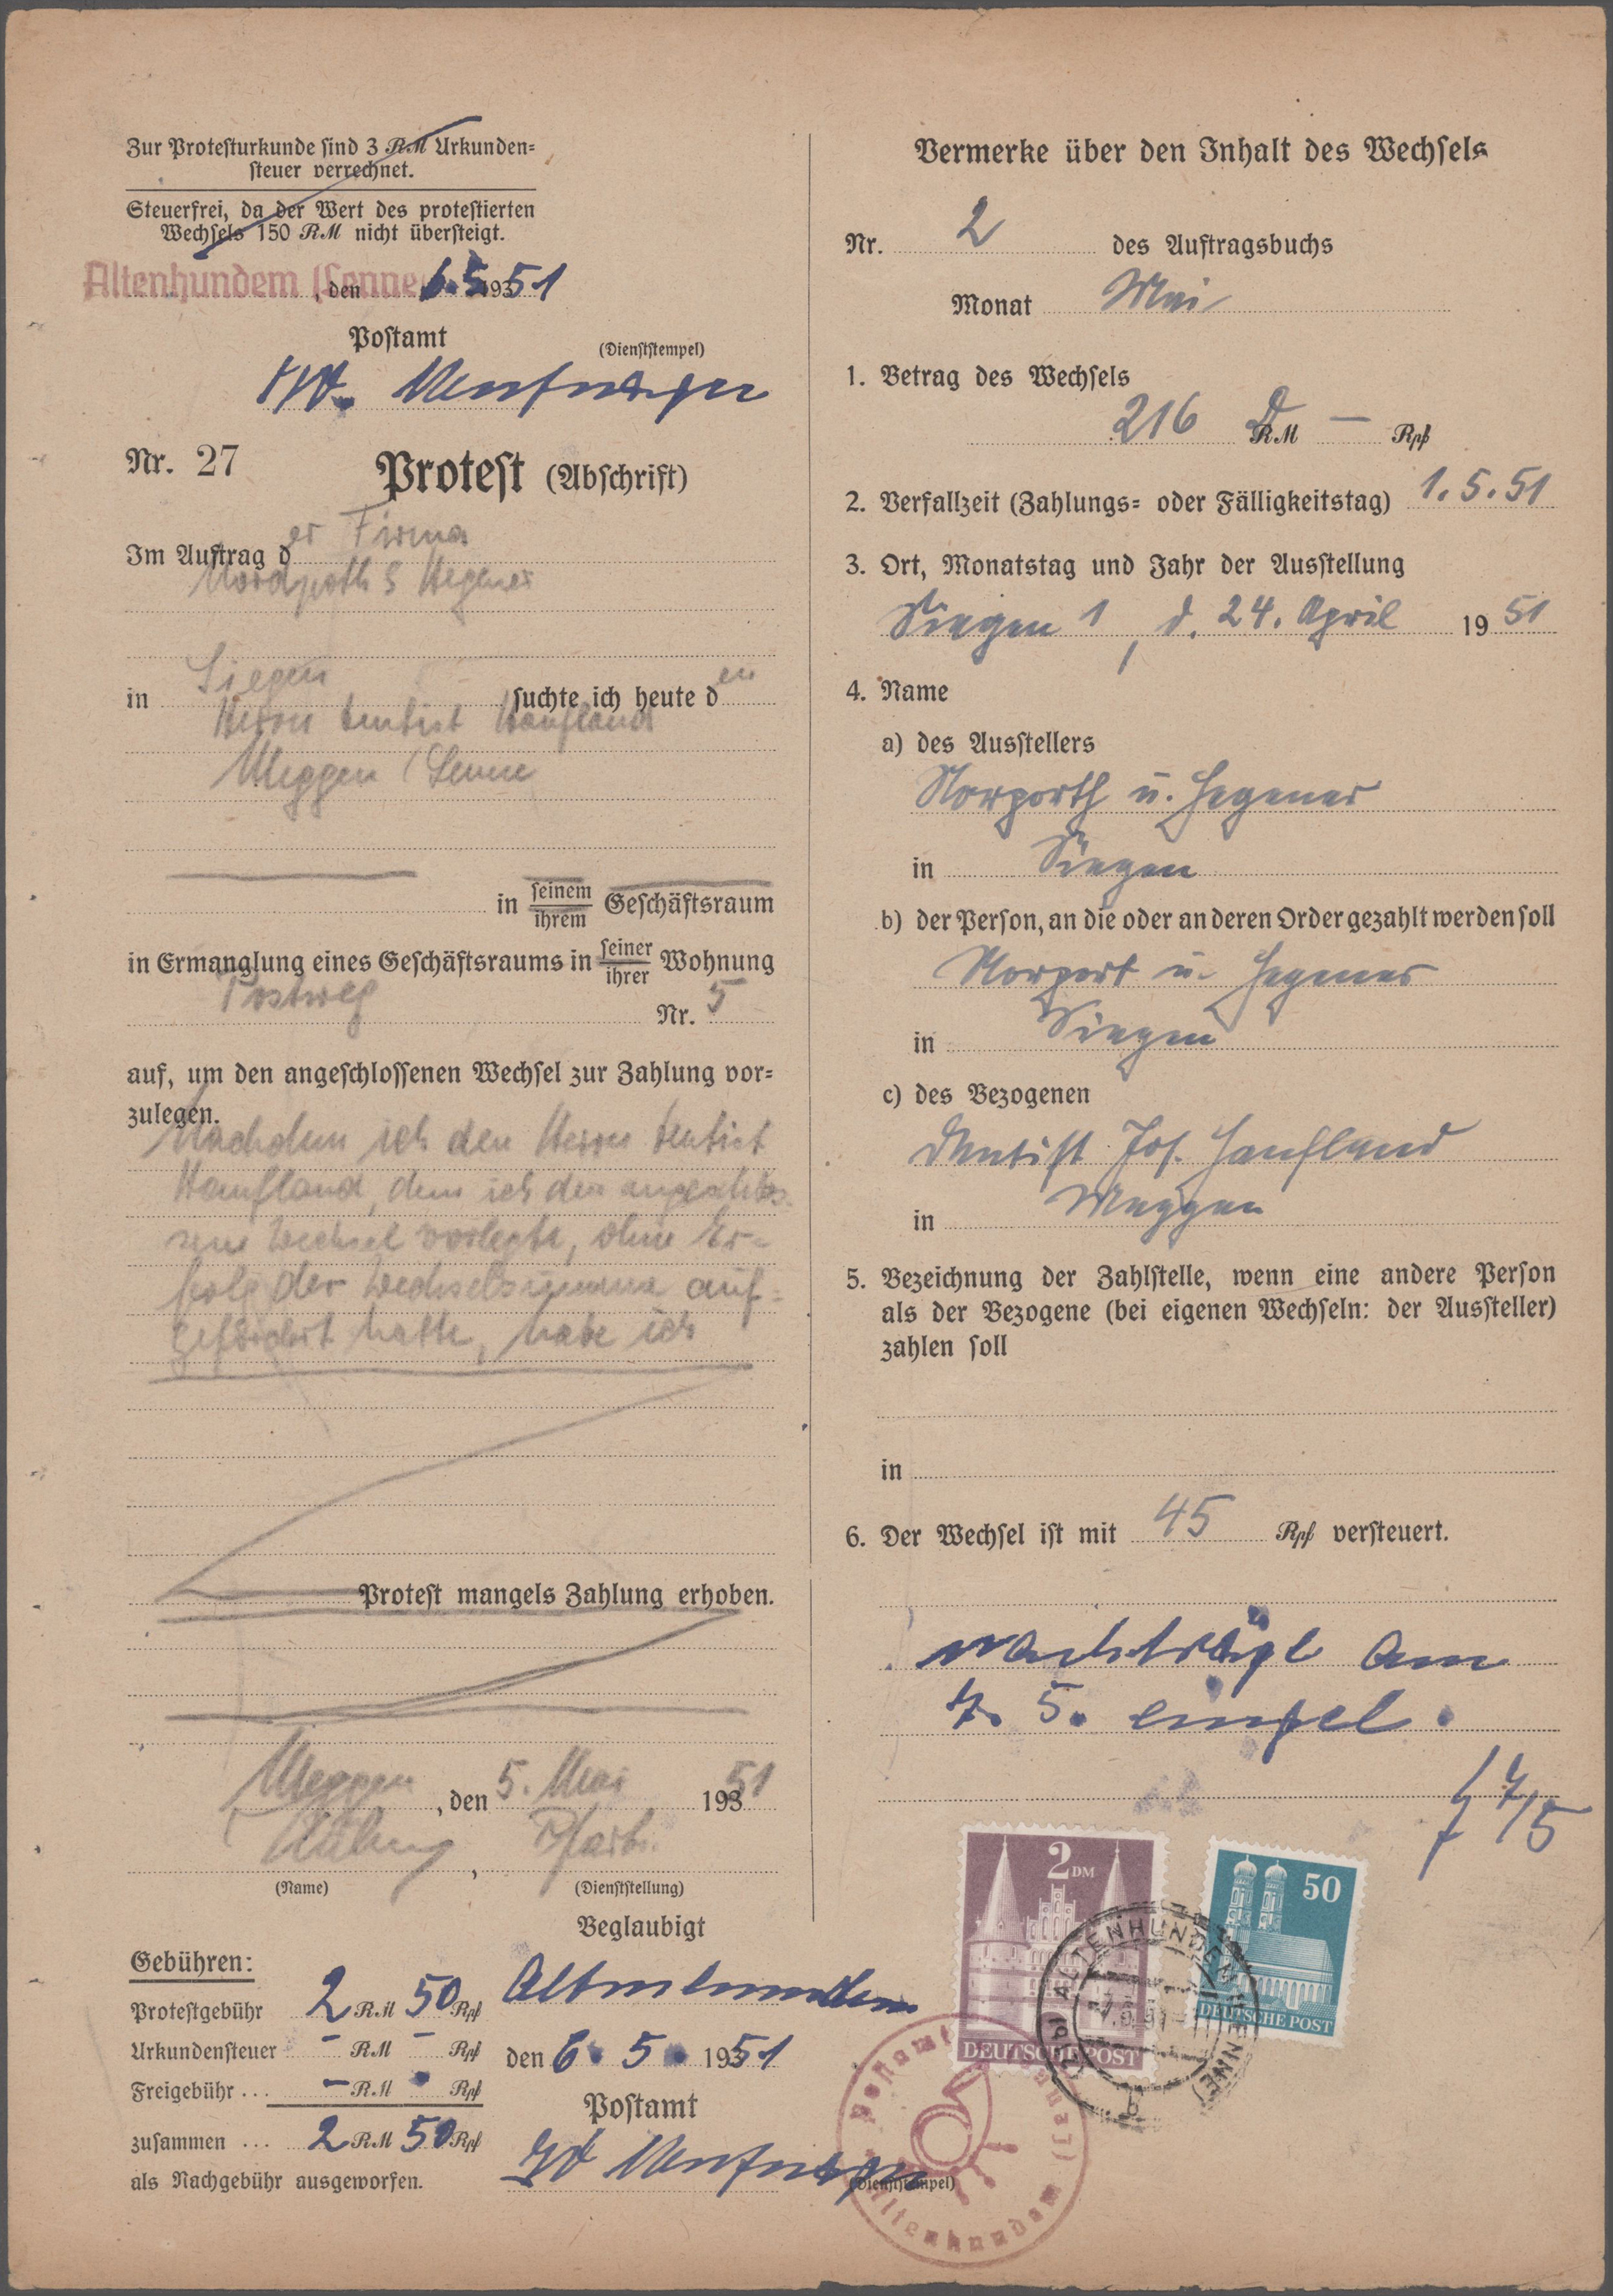 Zur Protesturkunde sind 3 RM Urkunden-
steuer verrechnet.
Steuerfrei, da der Wert des protestierten
Wechsels 150 RM nicht übersteigt.
Altenhundem (Lenne), den 6.5.193 51
Postamt
(Dienststempel)
Nr. 27 Protest (Abschrift)
Im Auftrag der Firma
& Hegener
in Siegen suchte ich heute den
Herrn Dentist Haufland
Meggen (Lenne
in seinem/ihrem Geschäftsraum
in Ermanglung eines Geschäftsraums in seiner/ihrer Wohnung
Postweg
Nr. 5
auf, um den angeschlossenen Wechsel zur Zahlung vor-
zulegen.
Nachdem ich den Herrn Dentist
Haufland, dem ich den angeschlos-
sene Wechsel vorlegte, ohne Er-
folg der Wechselsumme auf-
gefordert hatte, habe ich
Protest mangels Zahlung erhoben.
Meggen, den 5. Mai 193 51
(Name) (Dienststellung)
Beglaubigt
Gebühren:
Protestgebühr 2 RM 50 Rpf
Urkundensteuer - RM - Rpf
Freigebühr ... - RM - Rpf
zusammen ... 2 RM 50 Rpf
als Nachgebühr ausgeworfen.
Altenhundem
den 6. 5. 193 51
Postamt
(Dienststempel)
Vermerke über den Inhalt des Wechsels
Nr. 2 des Auftragsbuchs
Monat Mai
1. Betrag des Wechsels
216 D RM — Rpf
2. Verfallzeit (Zahlungs- oder Fälligkeitstag) 1.5.51
3. Ort, Monatstag und Jahr der Ausstellung
Siegen 1, d. 24. April 19 51
4. Name
a) des Ausstellers
Norporth u. Hegener
in Siegen
b) der Person, an die oder an deren Order gezahlt werden soll
Norport u. Hegener
in Siegen
c) des Bezogenen
Dentist Jos. Haufland
in Meggen
5. Bezeichnung der Zahlstelle, wenn eine andere Person
als der Bezogene (bei eigenen Wechseln: der Aussteller)
zahlen soll
in
6. Der Wechsel ist mit 45 Rpf versteuert.
nachträgl am
7. 5. eingel.
7/5
2 DM
DEUTSCHE POST
50
DEUTSCHE POST
ALTENHUNDEM (LENNE)
b
Postamt
Altenhundem